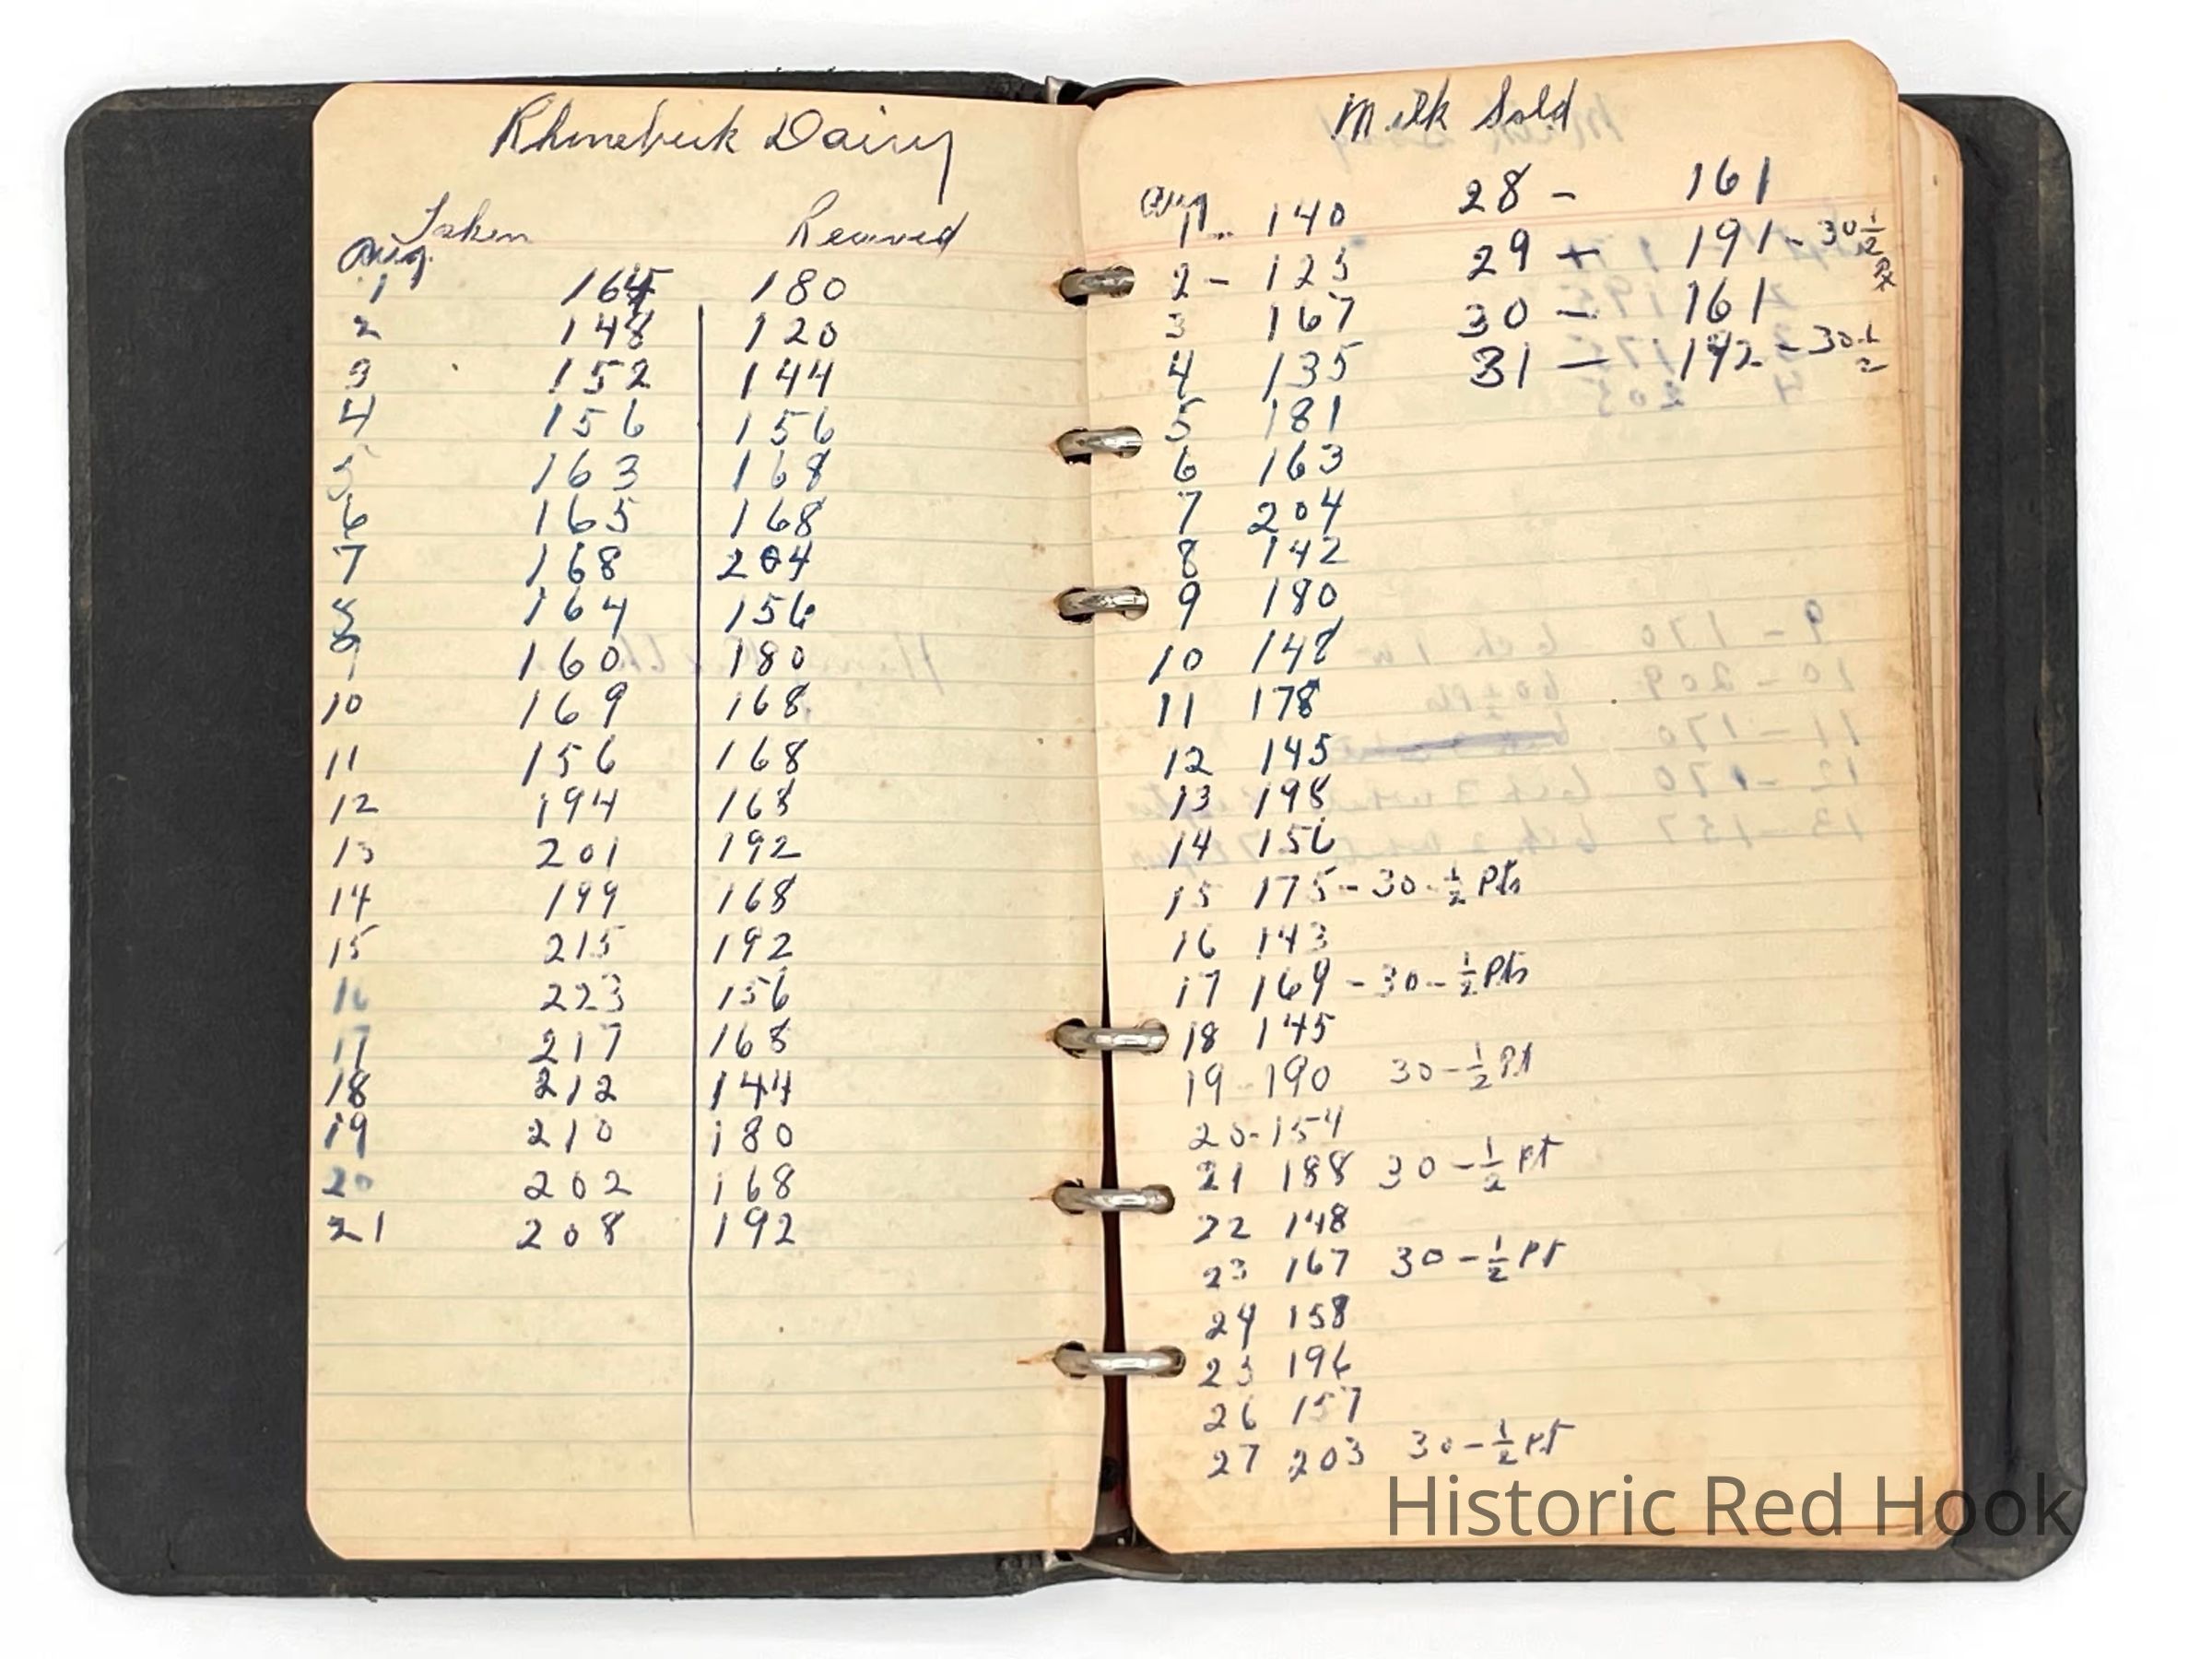 Rhinebeck Dairy
Taken Received
Aug.
1 164 180
2 148 120
3 152 144
4 156 156
5 163 168
6 165 168
7 168 204
8 164 156
9 160 180
10 169 168
11 156 168
12 194 168
13 201 192
14 199 168
15 215 192
16 223 156
17 217 168
18 212 144
19 210 180
20 202 168
21 208 192
Milk Sold
Aug
1 - 140
2 - 125
3 167
4 135
5 181
6 163
7 204
8 142
9 180
10 148
11 178
12 145
13 198
14 156
15 175 - 30 - 1/2 Pts
16 143
17 169 - 30 - 1/2 Pts
18 145
19 - 190 30 - 1/2 Pt
20 - 154
21 188 30 - 1/2 Pt
22 148
23 167 30 - 1/2 Pt
24 158
25 196
26 157
27 203 30 - 1/2 Pt
28 - 161
29 - 191 - 30 1/2 Pt
30 - 161
31 - 192 - 30 - 1/2
Historic Red Hook